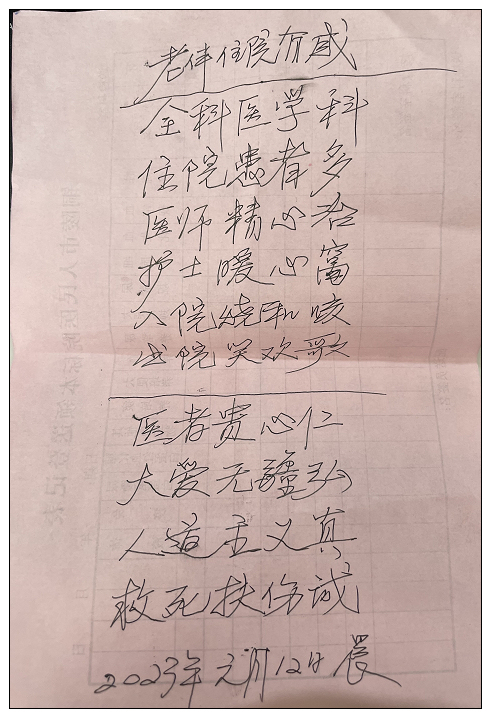 老伴住院有感
全科医学科
住院患者多
医师精心治
护士暖心富
入院烧和咳
出院笑欢歌
医者贵心仁
大爱无疆弘
人道主义真
救死扶伤诚
2023年元月12日晨